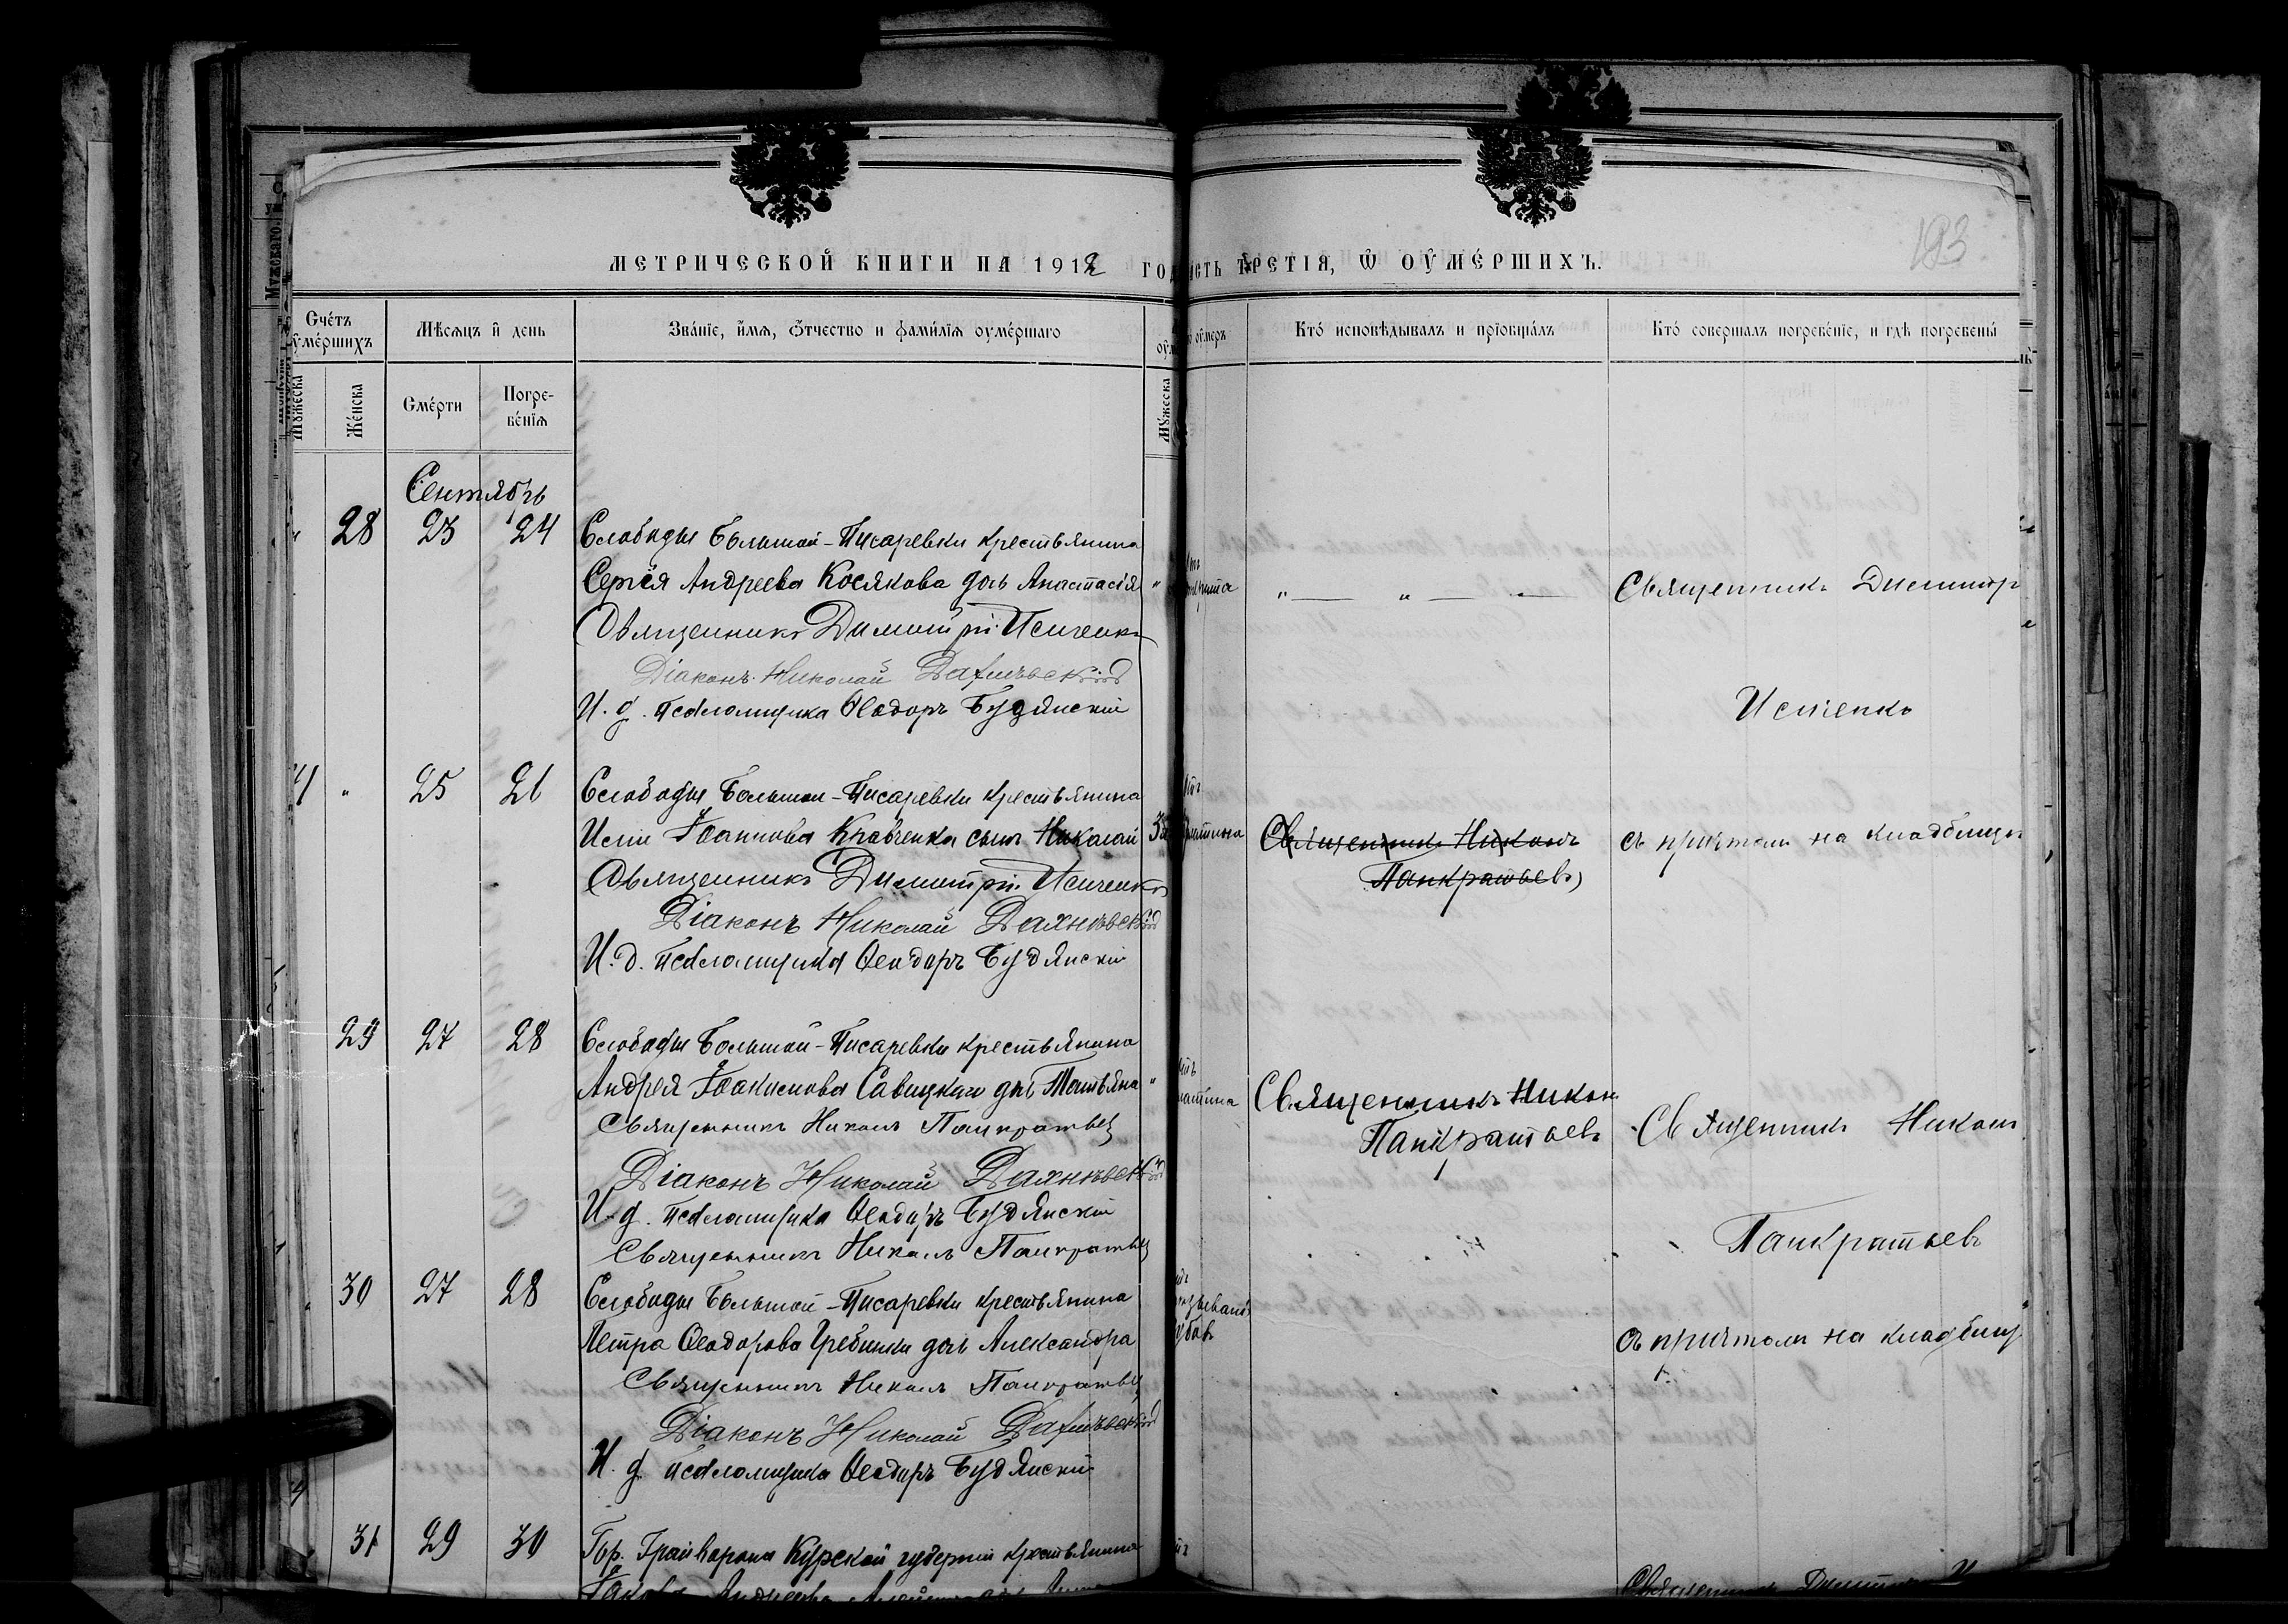 МЕТРИЧЕСКОЙ КНИГИ НА 1912 ГОД
СТЬ ТРЕТІЯ, Ѿ ОУМЕРШИХЪ.
193
Счетъ оумершихъ
Мужеска
Женска
Мѣсяцъ и день
Смерти
Погребенія
Званіе, имя, отчество и фамилія оумершаго
Мужеска
оумеръ
Кто исповѣдывалъ и пріобщалъ
Кто совершалъ погребеніе, и гдѣ погребены
Сентябрь
28 23 24
Слободы Большой-Писаревки крестьянина
Сергѣя Андреева Косякова дочь Анастасія
Священникъ Димитрій Исиченко
Діаконъ Николай
И. д. псаломщика Ѳеодоръ Будянскій
Священникъ Димитр
Исиченко
25 26
Слободы Большой-Писаревки крестьянина
Іоаннова Кравченка сынъ Николай
Священникъ Димитрій Исиченко
Діаконъ Николай
И. д. псаломщика Ѳеодоръ Будянскій
Священникъ Никонъ
Панкратьевъ
съ причтомъ на кладбищѣ
29 27 28
Слободы Большой-Писаревки крестьянина
Андрея Іоакимова Савицкаго дочь Татьяна
Священникъ Никонъ Панкратьев
Діаконъ Николай
И. д. псаломщика Ѳеодоръ Будянскій
Священникъ Никонъ Панкратьев
Священникъ Никон
Панкратьевъ
Священникъ Никон
Панкратьевъ
30 27 28
Слободы Большой-Писаревки крестьянина
Петра Ѳеодорова Гребинки дочь Александра
Священникъ Никонъ Панкратьев
Діаконъ Николай
И. д. псаломщика Ѳеодоръ Будянскій
съ причтомъ на кладбищ
31 29 30
Гор. Грайворона Курской губерніи крестьянина
Іакова Андреева
Священникъ Димитрій